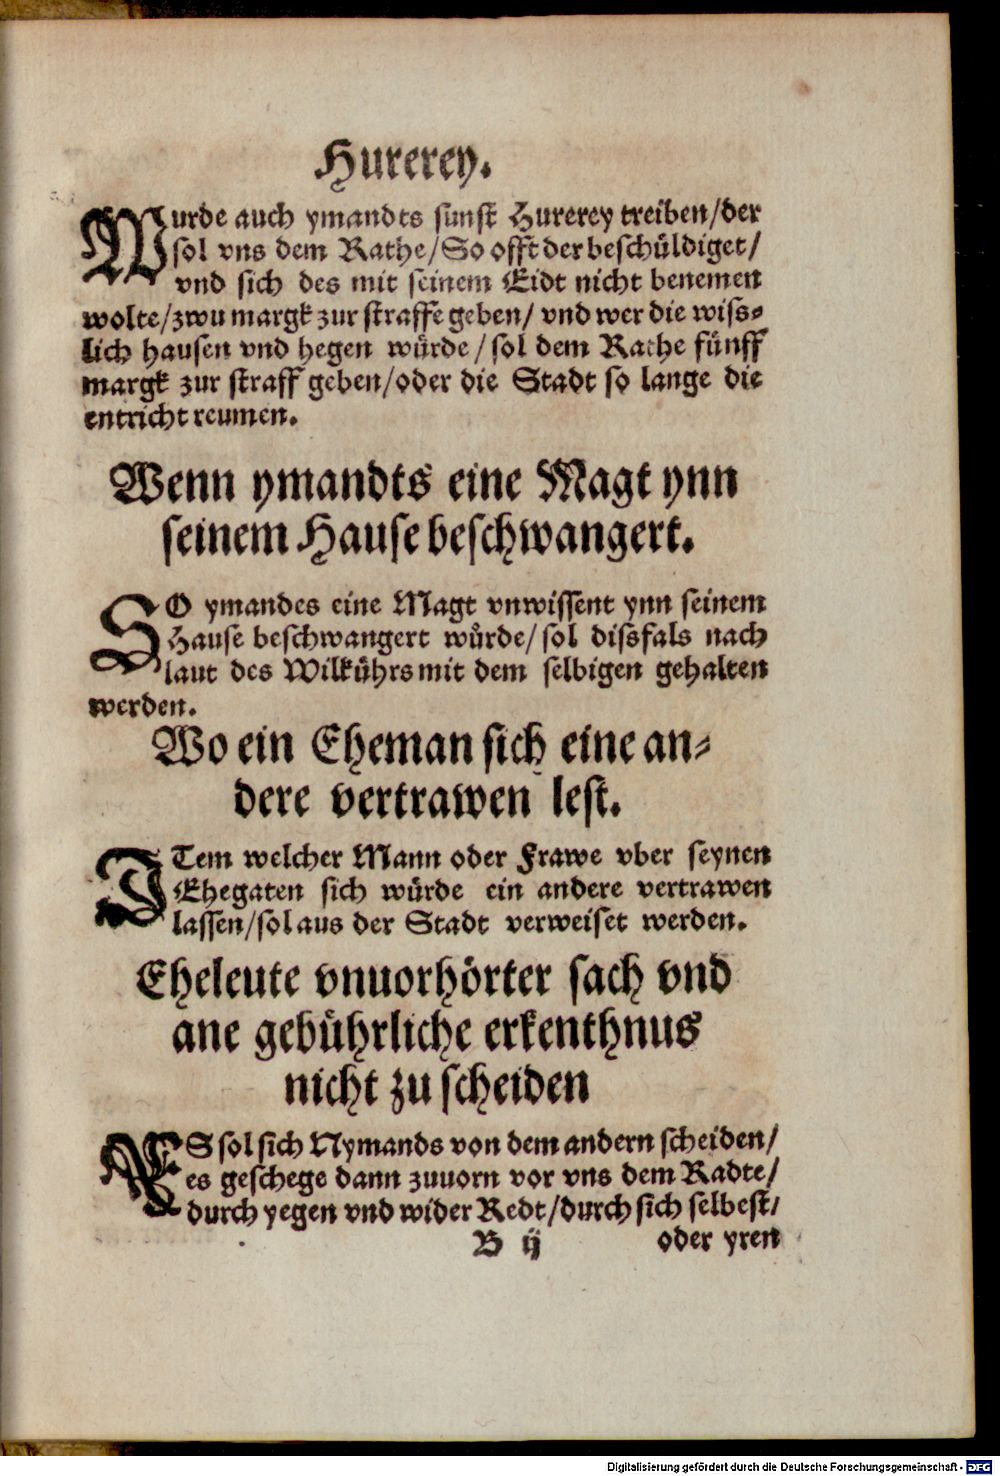 Hurerey.
Wurde auch ymandts sunst Hurerey treiben/der
sol vns dem Rathe/So offt der beschüldiget/
vnd sich des mit seinem Eidt nicht benemen
wolte/zwu margk zur straffe geben/ vnd wer die wiss⸗
lich hausen vnd hegen würde/sol dem Rathe fünff
margk zur straff geben/oder die Stadt so lange die
entricht reumen.
Wenn ymandts eine Magt ynn
seinem Hause beschwangert.
SO ymandes eine Magt vnwissent ynn seinem
Hause beschwangert würde/sol dissfals nach
laut des Wilkührs mit dem selbigen gehalten
werden.
Wo ein Eheman sich eine an⸗
dere vertrawen lest.
ITem welcher Mann oder Frawe vber seynen
Ehegaten sich würde ein andere vertrawen
lassen/sol aus der Stadt verweiset werden.
Eheleute vnuorhörter sach vnd
ane gebührliche erkenthnus
nicht zu scheiden
ES sol sich Nymands von dem andern scheiden/
es geschege dann zuuorn vor vns dem Radte/
durch yegen vnd wider Redt/durch sich selbest/
B ij oder yren
Digitalisierung gefördert durch die Deutsche Forschungsgemeinschaft - DFG